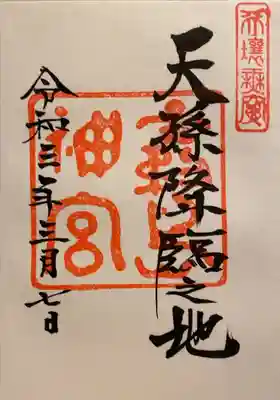 天壌無窮
天孫降臨之地
霧島
神宮
令和三年三月七日